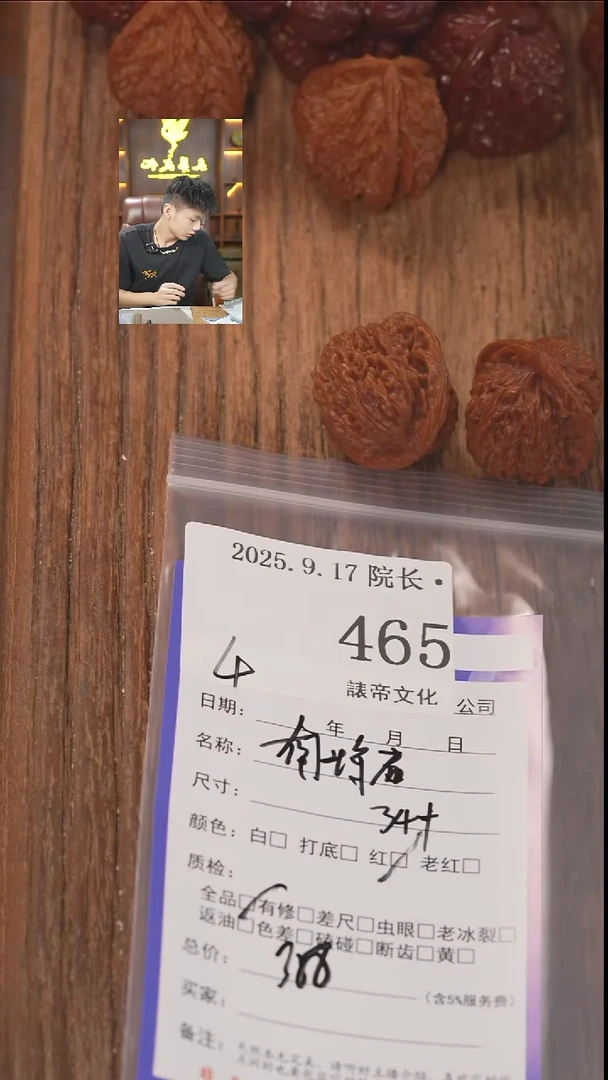 2025.9.17 院长·
465
4
誺帝文化 公司
日期： 年 月 日
名称：
尺寸： 34+
颜色：白□ 打底□ 红□ 老红□
质检：
全品□有修□差尺□虫眼□老冰裂□
返油□色差□磕碰□断齿□黄□
总价： 388 （含5%服务费）
买家：
备注：